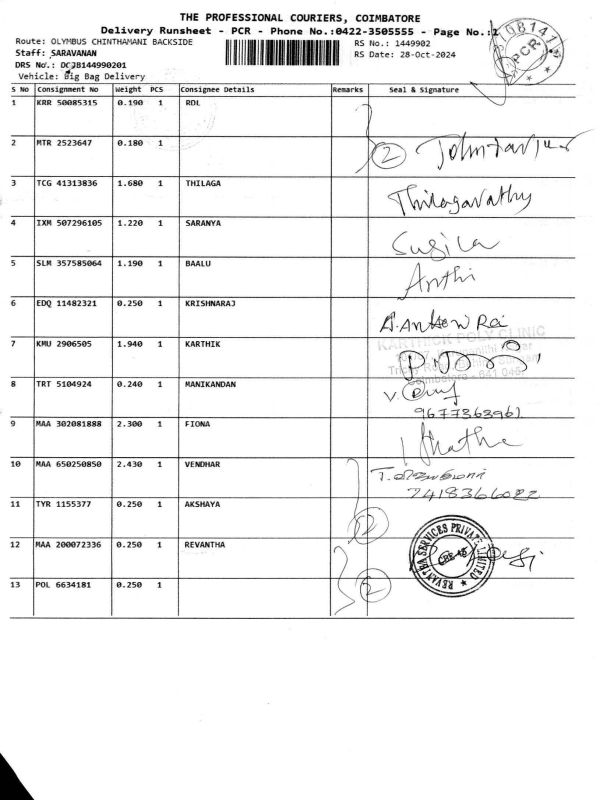 THE PROFESSIONAL COURIERS, COIMBATORE
Delivery Runsheet - PCR - Phone No.:0422-3505555 - Page No.:1
Route: OLYMBUS CHINTHAMANI BACKSIDE RS No.: 1449902
Staff: SARAVANAN RS Date: 28-Oct-2024
DRS No.: DCJB144990201
Vehicle: Big Bag Delivery
PCR
S No Consignment No Weight PCS Consignee Details Remarks Seal & Signature
1 KRR 50085315 0.190 1 RDL
2 MTR 2523647 0.180 1 2
3 TCG 41313836 1.680 1 THILAGA Thilagavathy
4 IXM 507296105 1.220 1 SARANYA Sugila
5 SLM 357585064 1.190 1 BAALU Anthi
6 EDQ 11482321 0.250 1 KRISHNARAJ
KARTHICK POLY CLINIC
7 KMU 2906505 1.940 1 KARTHIK
Coimbatore - 641
8 TRT 5104924 0.240 1 MANIKANDAN
9677363961
9 MAA 302081888 2.300 1 FIONA
10 MAA 650250850 2.430 1 VENDHAR
7418366022
11 TYR 1155377 0.250 1 AKSHAYA 2
12 MAA 200072336 0.250 1 REVANTHA
REVANTHA SERVICES PRIVATE LIMITED
13 POL 6634181 0.250 1 2